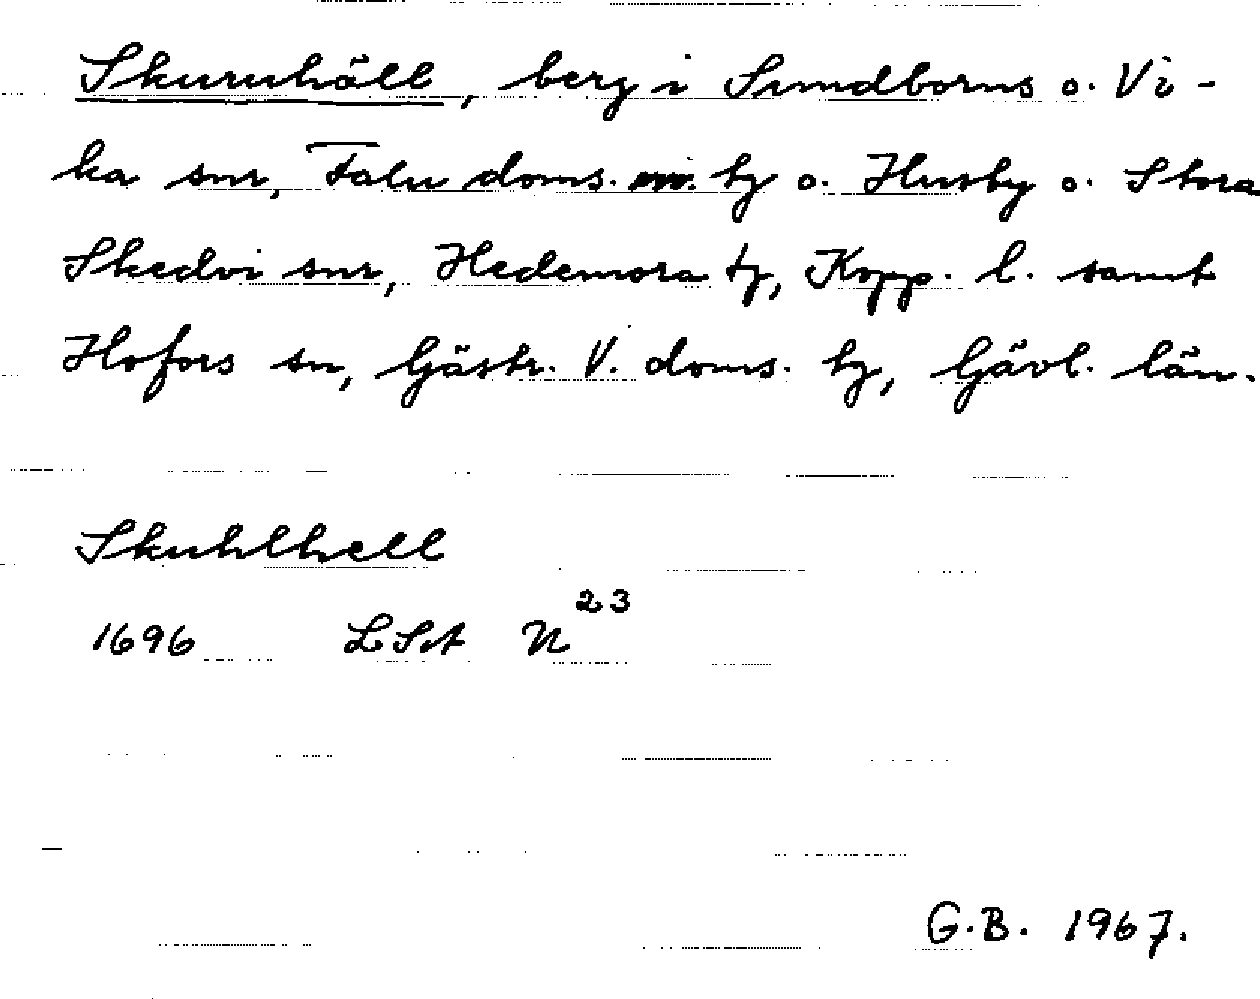 Skuruhäll, berg i Sundborns o. Vi-
ka snr, Falu doms. tg o. Husby o. Stora
Skedvi snr, Hedemora tg, Kopp. l. samt
Hofors sn, Gästr. V. doms. tg, Gävl. län.
Skuhlhell
1696 LSt N 23
G.B. 1967.